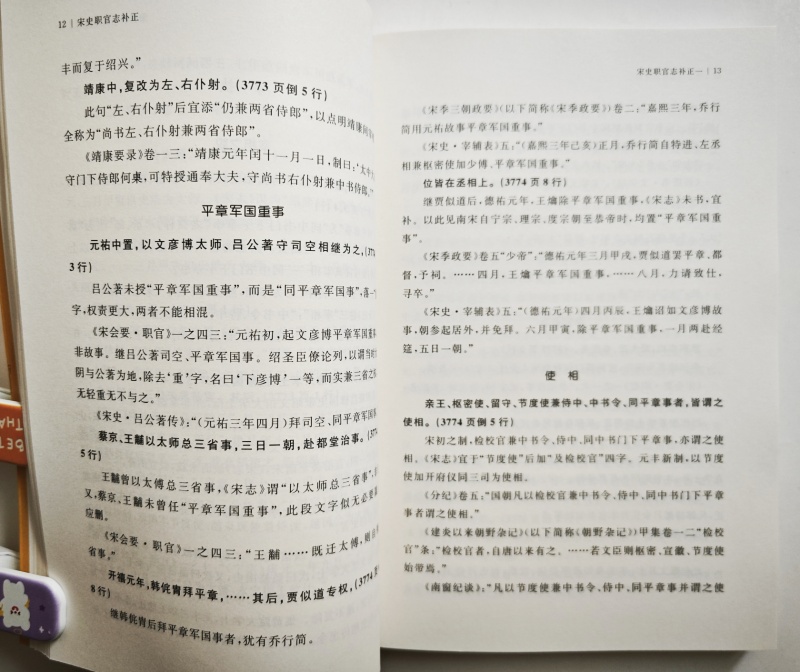 12 | 宋史职官志补正
丰而复于绍兴。”
靖康中,复改为左、右仆射。(3773 页倒 5 行)
此句“左、右仆射”后宜添“仍兼两省侍郎”,以点明靖康间
全称为“尚书左、右仆射兼两省侍郎”。
《靖康要录》卷一三:“靖康元年闰十一月一日,制曰:‘太中
守门下侍郎何㮚,可特授通奉大夫,守尚书右仆射兼中书侍郎。’”
平章军国重事
元祐中置,以文彦博太师、吕公著守司空相继为之,(3774
3 行)
吕公著未授“平章军国重事”,而是“同平章军国事”,落一
字,权责更大,两者不能相混。
《宋会要·职官》一之四三:“元祐初,起文彦博平章军国重事
非故事。继吕公著司空、平章军国事。绍圣臣僚论列,以谓当时
阴与公著为地,除去‘重’字,名曰‘下彦博’一等,而实兼三省之
无轻重无不与之。”
《宋史·吕公著传》:“(元祐三年四月)拜司空、同平章军国
蔡京、王黼以太师总三省事,三日一朝,赴都堂治事。(3774
5 行)
王黼曾以太傅总三省事,《宋志》谓“以太师总三省事”,
又,蔡京、王黼未曾任“平章军国重事”,此段文字似无必要
应删。
《宋会要·职官》一之四三:“王黼……既迁太傅,
省事。”
开禧元年,韩侂胄拜平章,……其后,贾似道专权,(3774
8 行)
继韩侂胄后拜平章军国事者,犹有乔行简。
宋史职官志补正一 | 13
《宋季三朝政要》(以下简称《宋季政要》)卷二:“嘉熙三年,乔行
简用元祐故事平章军国重事。”
《宋史·宰辅表》五:“(嘉熙三年己亥)正月,乔行简自特进、左丞
相兼枢密使加少傅、平章军国重事。”
位皆在丞相上。(3774 页 8 行)
继贾似道后,德祐元年,王爚除平章军国重事,《宋志》未书,宜
补。以此见南宋自宁宗、理宗、度宗朝至恭帝时,均置“平章军国重事
”。
《宋季政要》卷五“少帝”:“德祐元年三月甲戌,贾似道罢平章、都
督,予祠。……四月,王爚平章军国重事。……八月,力请致仕,
寻卒。”
《宋史·宰辅表》五:“(德祐元年)四月丙辰,王爚诏如文彦博故
事,朝参起居外,并免拜。六月甲寅,除平章军国重事,一月两赴经
筵,五日一朝。”
使 相
亲王、枢密使、留守、节度使兼侍中、中书令、同平章事者,皆谓之
使相。(3774 页倒 5 行)
宋初之制,检校官兼中书令、侍中、同中书门下平章事,亦谓之使
相。《宋志》宜于“节度使”后加“及检校官”四字。元丰新制,以节度
使加开府仪同三司为使相。
《分纪》卷五:“国朝凡以检校官兼中书令、侍中、同中书门下平章
事者谓之使相。”
《建炎以来朝野杂记》(以下简称《朝野杂记》)甲集卷一二“检校
官”条:“检校官者,自唐以来有之。……若文臣则枢密、宣徽、节度使
始带焉。”
《南窗纪谈》:“凡以节度使兼中书令、侍中、同平章事并谓之使